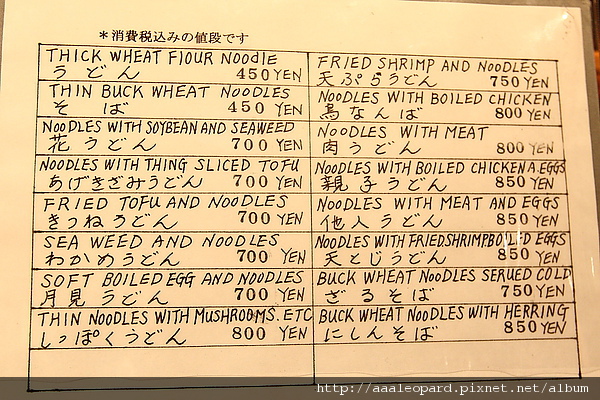 *消費税込みの値段です
THICK WHEAT FlOUR NOOdlE
うどん 450 YEN
THIN BUCK WHEAT NOODLES
そば 450 YEN
NOODLES WITH SOYBEAN AND SEAWEED
花うどん 700 YEN
NOODLES WITH THING SLICED TOFU
あげきざみうどん 700 YEN
FRIED TOFU AND NOODLES
きつねうどん 700 YEN
SEA WEED AND NOODLES
わかめうどん 700 YEN
SOFT BOILED EGG AND NOODLES
月見うどん 700 YEN
THIN NOODLES WITH MUSHROOMS. ETC
しっぽくうどん 800 YEN
FRIED SHRIMP AND NOODLES
天ぷらうどん 750 YEN
NOODLES WITH BOILED CHICKEN
鳥なんば 800 YEN
NOODLES WITH MEAT
肉うどん 800 YEN
NOODLES WITH BOILED CHICKEN A. EGGS
親子うどん 850 YEN
NOODLES WITH MEAT AND EGGS
他人うどん 850 YEN
NOODLES WITH FRIED SHRIMP BOILED EGGS
天とじうどん 850 YEN
BUCK WHEAT NOODLES SERUED COLD
ざるそば 750 YEN
BUCK WHEAT NOODLES WITH HERRING
にしんそば 850 YEN
http://aaaleopard.pixnet.net/album